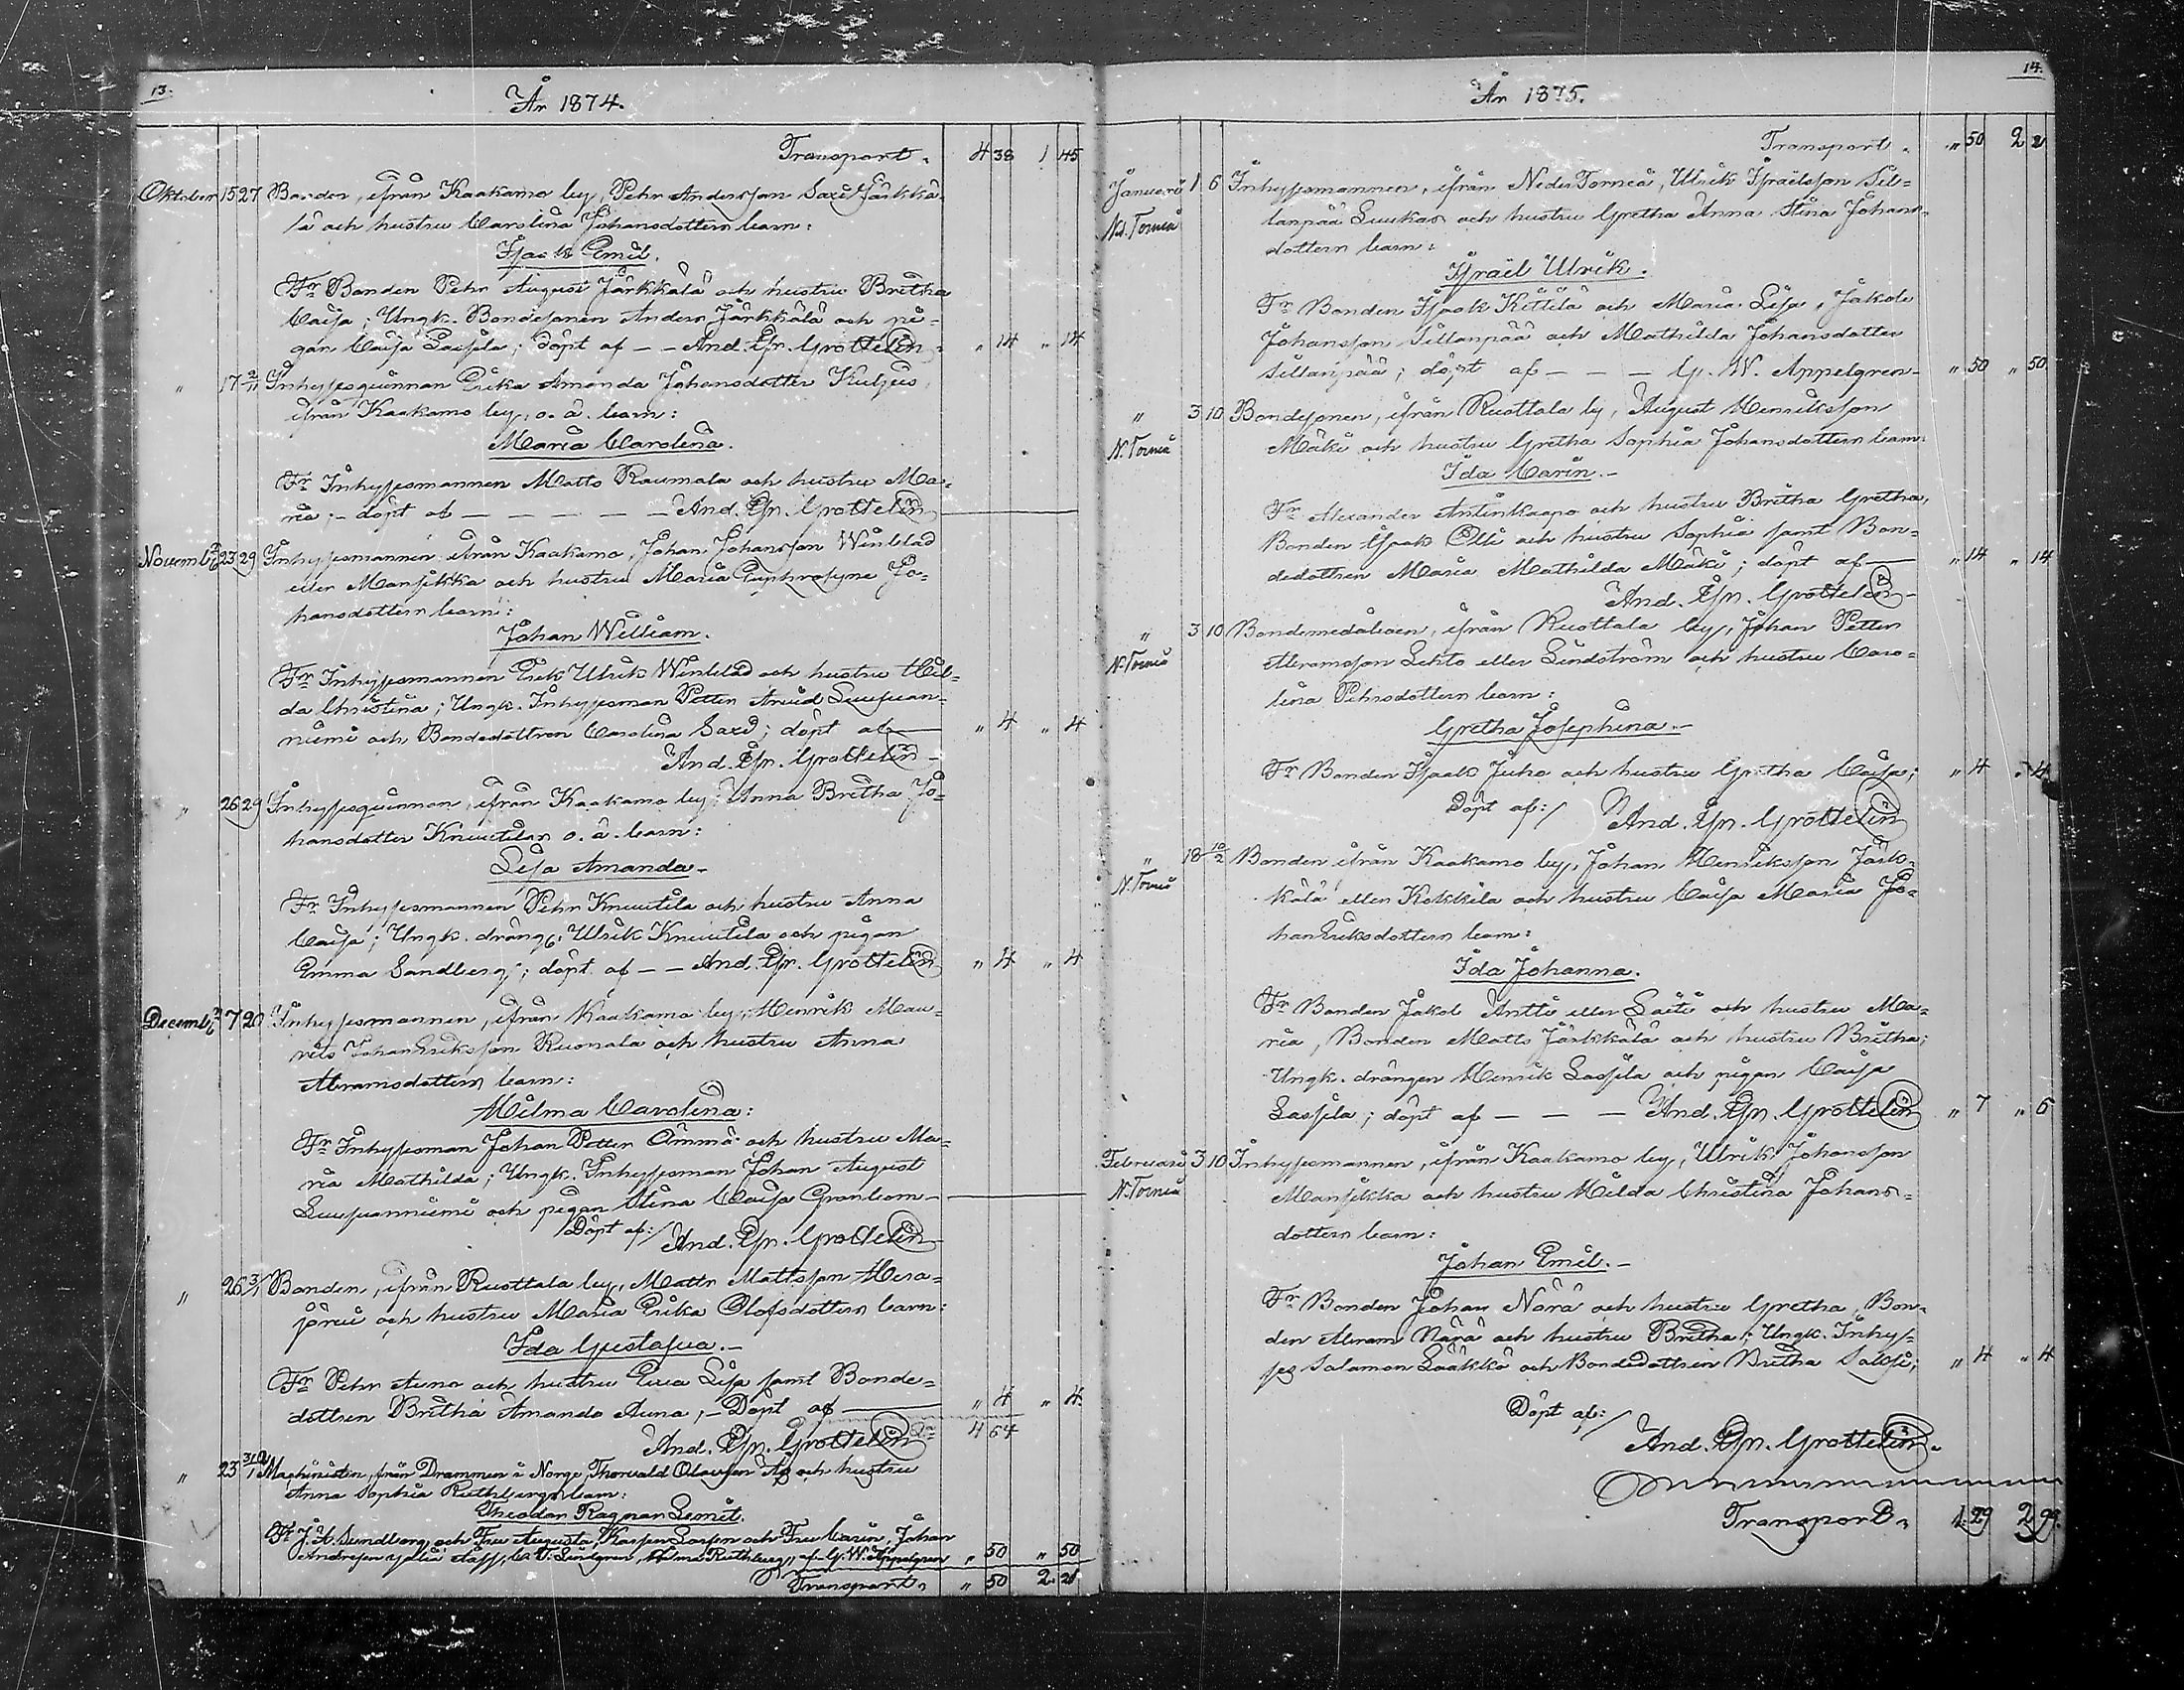 13.
År 1874.
Transport. 4 38 1 45
Oktober 15 27 Bonden, ifrån Kaakamo by, Pehr Andersson Saxi Järkkä-
lä och hustru Carolina Johansdotters barn:
Isaak Emil.
Fr Bonden Pehr August Järkkälä och hustru Britha
Caisa; Ungk. Bondesonen Anders Järkkälä och pi-
gan Caisa Lassila; döpt af — — And. Gr. Grottelin. " 14 " 14
" 17 2/11 Inhysesquinnan Erika Amanda Johansdotter Kuljus,
ifrån Kaakamo by, o. ä. barn:
Maria Carolina.
Fr Inhysesmannen Matts Raumala och hustru Ma-
ria; — döpt af — — — — — And. Gr. Grottelin
Novemb. 23 29 Inhysesmannen ifrån Kaakamo, Johan Johansson Winblad
eller Mansikka och hustru Maria Euphrosyne Jo-
hansdotters barn:
Johan William.
Fr Inhysesmannen Erik Ulrik Winblad och hustru Hil-
da Christina; Ungk. Inhysesman Petter Arvid Luusuan-
niemi och Bondedottren Carolina Saxi; döpt af — " 4 " 4
And. Gr. Grottelin —
" 26 29 Inhysesquinnan, ifrån Kaakamo by, Anna Britha Jo-
hansdotter Knuutilas o. ä. barn:
Lisa Amanda.
Fr Inhysesmannen Pehr Knuutila och hustru Anna
Caisa; Ungk. dräng Ulrik Knuutila och pigan
Emma Sandberg; döpt af — — And. Gr. Grottelin " 4 " 4
Decemb. 7 20 Inhysesmannen, ifrån Kaakamo by, Henrik Mau-
rits JohanEriksson Ruonala och hustru Anna
Abramsdotters barn:
Hilma Carolina:
Fr Inhysesman Johan Petter Ämmä och hustru Ma-
ria Mathilda; Ungk. Inhysesman Johan August
Luusuanniemi och pigan Stina Caisa Granbom —
Döpt af:/ And. Gr. Grottelin
" 26 3/1 Bonden, ifrån Ruottala by, Matts Mattsson Hera-
järvi och hustru Maria Erika Olofsdotters barn:
Ida Gustafva. —
Fr Pehr Auno och hustru Eva Lisa samt Bonde-
dottren Britha Amanda Auna, — Döpt af — " 4 " 4.
And. Gr. Grottelin 4 64
" 23 Maskinisten, från Drammen i Norge, Thorvald och hustru
Anna Sophia Ruthbergs barn:
Theodor Ragnar
Fr J. A. Sundberg och Fru Augusta, och Fru Carin, Johan
C. T. Lindgren, Ruthberg, af G. W. Appelgren " 50 " 50
Transport. " 50 2. 21
14.
År 1875.
Transport. " 50 2 21
Januari 1 6 Inhysesmannen, ifrån NederTorneå, Ulrik Israelsson Sil-
Nd. Torneå lanpää Luukas och hustru Gretha Anna Stina Johans-
dotters barn:
Israel Ulrik.
Fr Bonden Isaak Kettilä och Maria Lisa, Jakob
Johansson Sillanpää och Mathilda Johansdotter
Sillanpää; döpt af — — — G. W. Appelgren — " 50 " 50
" 3 10 Bondesonen, ifrån Ruottala by, August Henriksson
N. Torneå Mäki och hustru Gretha Sophia Johansdotters barn:
Ida Carin. —
Fr Alexander Antinkaapo och hustru Britha Gretha,
Bonden Isak Olli och hustru Sophia samt Bon-
dedottren Maria Mathilda Mäki; döpt af — " 14 " 14
And. Gr. Grottelin —
" 3 10 Bondemedålägen, ifrån Ruottala by, Johan Petter
N. Torneå Abramsson Lehto eller Lindström och hustru Caro-
lina Pehrsdotters barn:
Gretha Josephina. —
Fr Bonden Isaak Juho och hustru Gretha Caisa; " 4 " 4
Döpt af:/ And. Gr. Grottelin
" 18 10/2 Bonden ifrån Kaakamo by, Johan Henriksson Järk-
N. Torneå kälä eller Kokkila och hustru Caisa Maria Jo-
hanEriksdotters barn:
Ida Johanna.
Fr Bonden Jakob Antti eller Laiti och hustru Ma-
ria, Bonden Matts Järkkälä och hustru Britha;
Ungk. drängen Henrik Lassila och pigan Caisa
Lassila; döpt af — — — And. Gr. Grottelin " 7 " 5
Februari 3 10 Inhysesmannen, ifrån Kaakamo by, Ulrik Johansson
N. Torneå Mansikka och hustru Hilda Christina Johans-
dotters barn:
Johan Emil. —
Fr Bonden Johan Närä och hustru Gretha, Bon-
den Abram Närä och hustru Britha; Ungk. Inhys-
ses Salamon Lääkkö och Bondedottren Britha " 4 " 4
Döpt af:/
And. Gr. Grottelin.
Transport. 1. 29 2 99.